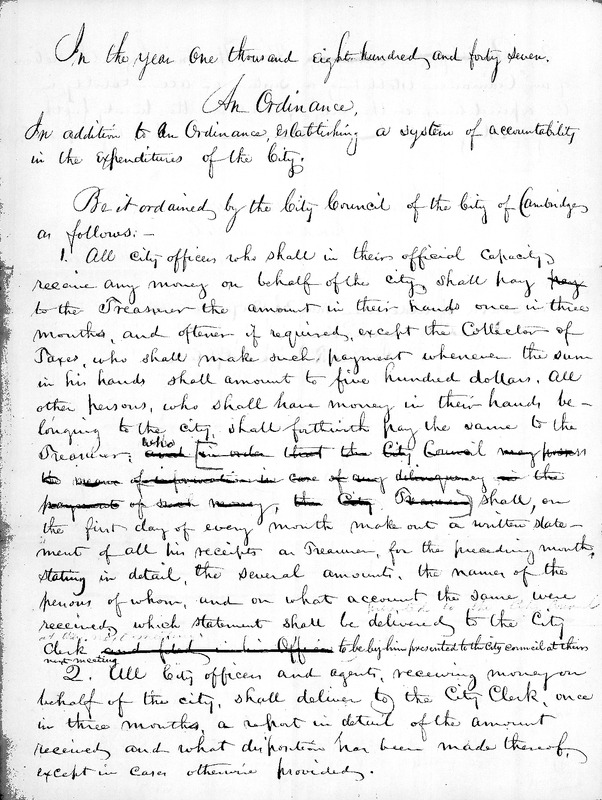 In the year One thousand eight hundred and forty seven.
An Ordinance,
In addition to An Ordinance, establishing a system of accountability
in the expenditures of the City.
Be it ordained by the City Council of the City of Cambridge
as follows: -
1. All city officers who shall in their official capacity,
receive any money on behalf of the city, shall pay pay
to the Treasurer the amount in their hands once in three
months, and oftener if required, except the Collector of
Taxes, who shall make such payment whenever the sum
in his hands shall amount to five hundred dollars. All
other persons, who shall have money in their hands be-
longing to the city, shall forthwith pay the same to the
who
Treasurer; and in order that the City Council may possess
the means of information in case of any delinquency in the
payment of such money, the City Treasurer shall, on
the first day of every month make out a written state-
ment of all his receipts as Treasurer, for the preceding month,
stating in detail, the several amounts, the names of the
persons of whom, and on what account the same were
received, which statement shall be delivered to the City
Clerk and filed in his Office to be by him presented to the City Council at their
next meeting
2. All City officers and agents, receiving money on
behalf of the city, shall deliver to the City Clerk, once
in three months, a report in detail of the amount
received and what disposition has been made thereof,
except in cases otherwise provided.